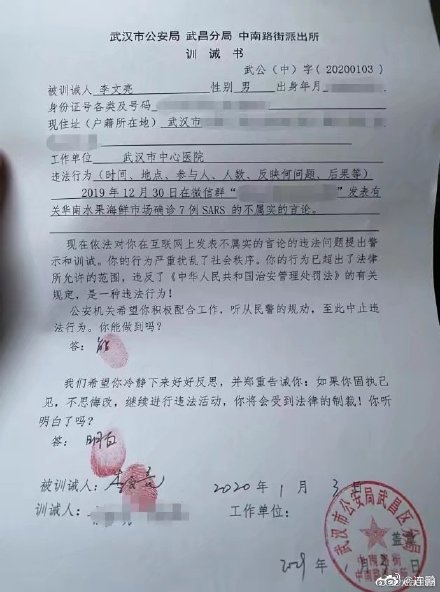 武汉市公安局 武昌分局 中南路街派出所
训诫书
武公(中)字(20200103)
被训诫人 李文亮 性别 男 出生年月
身份证号各类及号码
现住址(户籍所在地) 武汉市
工作单位 武汉市中心医院
违法行为(时间、地点、参与人、人数、反映何问题、后果等)
2019年12月30日在微信群“ ”发表有
关华南水果海鲜市场确诊7例SARS的不属实的言论。
现在依法对你在互联网上发表不属实的言论的违法问题提出警
示和训诫。你的行为严重扰乱了社会秩序。你的行为已超出了法律
所允许的范围,违反了《中华人民共和国治安管理处罚法》的有关
规定,是一种违法行为!
公安机关希望你积极配合工作,听从民警的规劝,至此中止违
法行为。你能做到吗?
答:能
我们希望你冷静下来好好反思,并郑重告诫你:如果你固执己
见,不思悔改,继续进行违法活动,你将会受到法律的制裁!你听
明白了吗?
答:明白
被训诫人:李文亮 2020年1月3日
训诫人: 工作单位:
盖章
武汉市公安局武昌区分局
中南路街
@连鹏